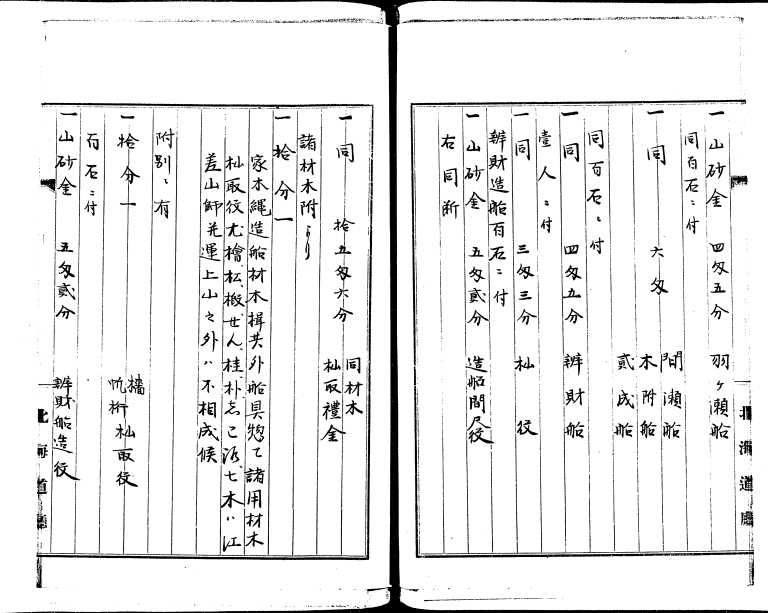 一山砂金　四匁五分　羽ヶ瀬船
同百石ニ付
一同　六匁　間瀬船
木附船
貳成船
同百石ニ付
一同　四匁五分　辨財船
壹人ニ付
一同　三匁三分　杣役
辨財造船百石ニ付
一山砂金　五匁貳分　造船間尺役
右同断
北海道廳
一同　拾五匁六分　同材木
杣取禮金
諸材木附ゟり
一拾分一
家木縄造船材木楫共外船具惣て諸用材木
杣取役尤檜、松、椴、せん、桂、朴、志こ濱、七木ハ江
差山師共運上山之外ハ不相成候
附別ニ有
一拾分一　檣
帆桁　杣取役
百石ニ付
一山砂金　五匁貳分　辨財船造役
北海道廳